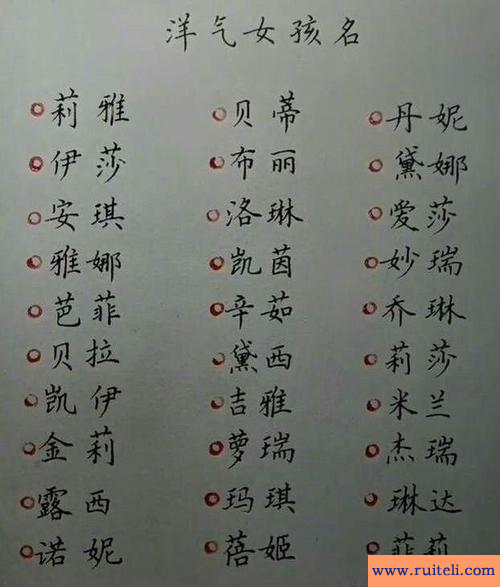 洋气女孩名
莉雅 贝蒂 丹妮
伊莎 布丽 黛娜
安琪 洛琳 爱莎
雅娜 凯茵 妙瑞
芭菲 辛茹 乔琳
贝拉 黛西 莉莎
凯伊 吉雅 米兰
金莉 萝瑞 杰瑞
露西 玛琪 琳达
诺妮 蓓姬 菲莉
www.ruiteli.com